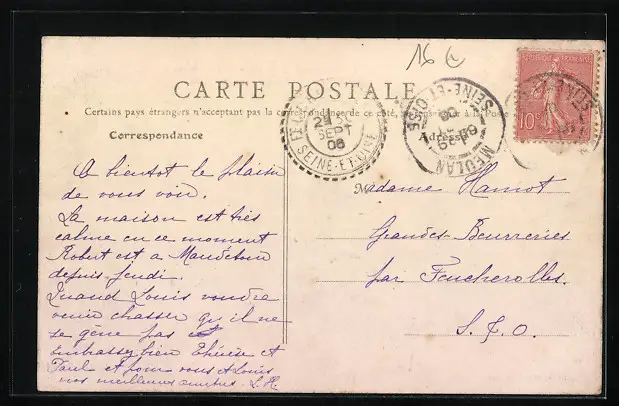 16
CARTE POSTALE
Certains pays étrangers n'acceptant pas la correspondance de ce côté,
Correspondance
Adresse
SEPT
06
SEINE-ET-OISE
MEULAN
SEINE-ET-OISE
RÉPUBLIQUE FRANÇAISE
10c
A bientot le plaisir
de vous voir.
La maison est très
calme en ce moment
Robert est a
depuis jeudi.
Quand Louis voudra
venir chasser qu'il ne
se gêne pas
Embrassez bien Thérèse et
Paul et pour vous et Louis
nos meilleures L. H.
Madame Hamot
Grandes-Beurreries
par Feucherolles.
S. &. O.